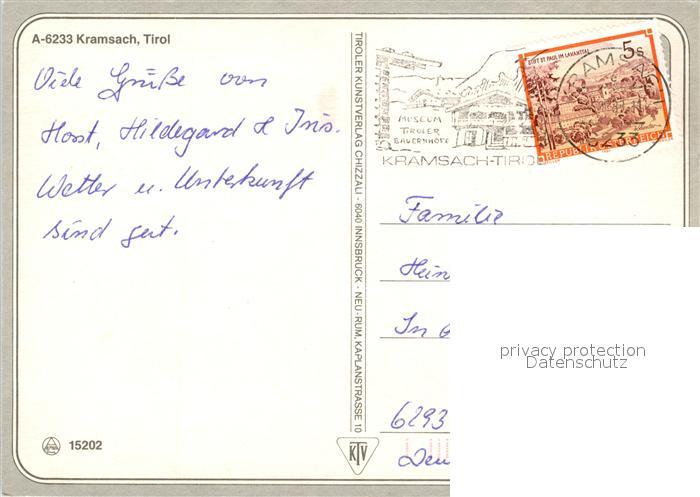 A-6233 Kramsach, Tirol
Viele Grüße von
Horst, Hildegard & Iris.
Wetter u. Unterkunft
sind gut.
15202
TIROLER KUNSTVERLAG CHIZZALI - 6040 INNSBRUCK - NEU-RUM, KAPLANSTRASSE 10
KTV
MUSEUM
TIROLER
BAUERNHÖFE
KRAMSACH-TIRO
STIFT ST. PAUL IM LAVANTTAL
5s
REPUBLIK ÖSTERREICH
6233
Familie
Hein
In
6293
Deu
privacy protection
Datenschutz